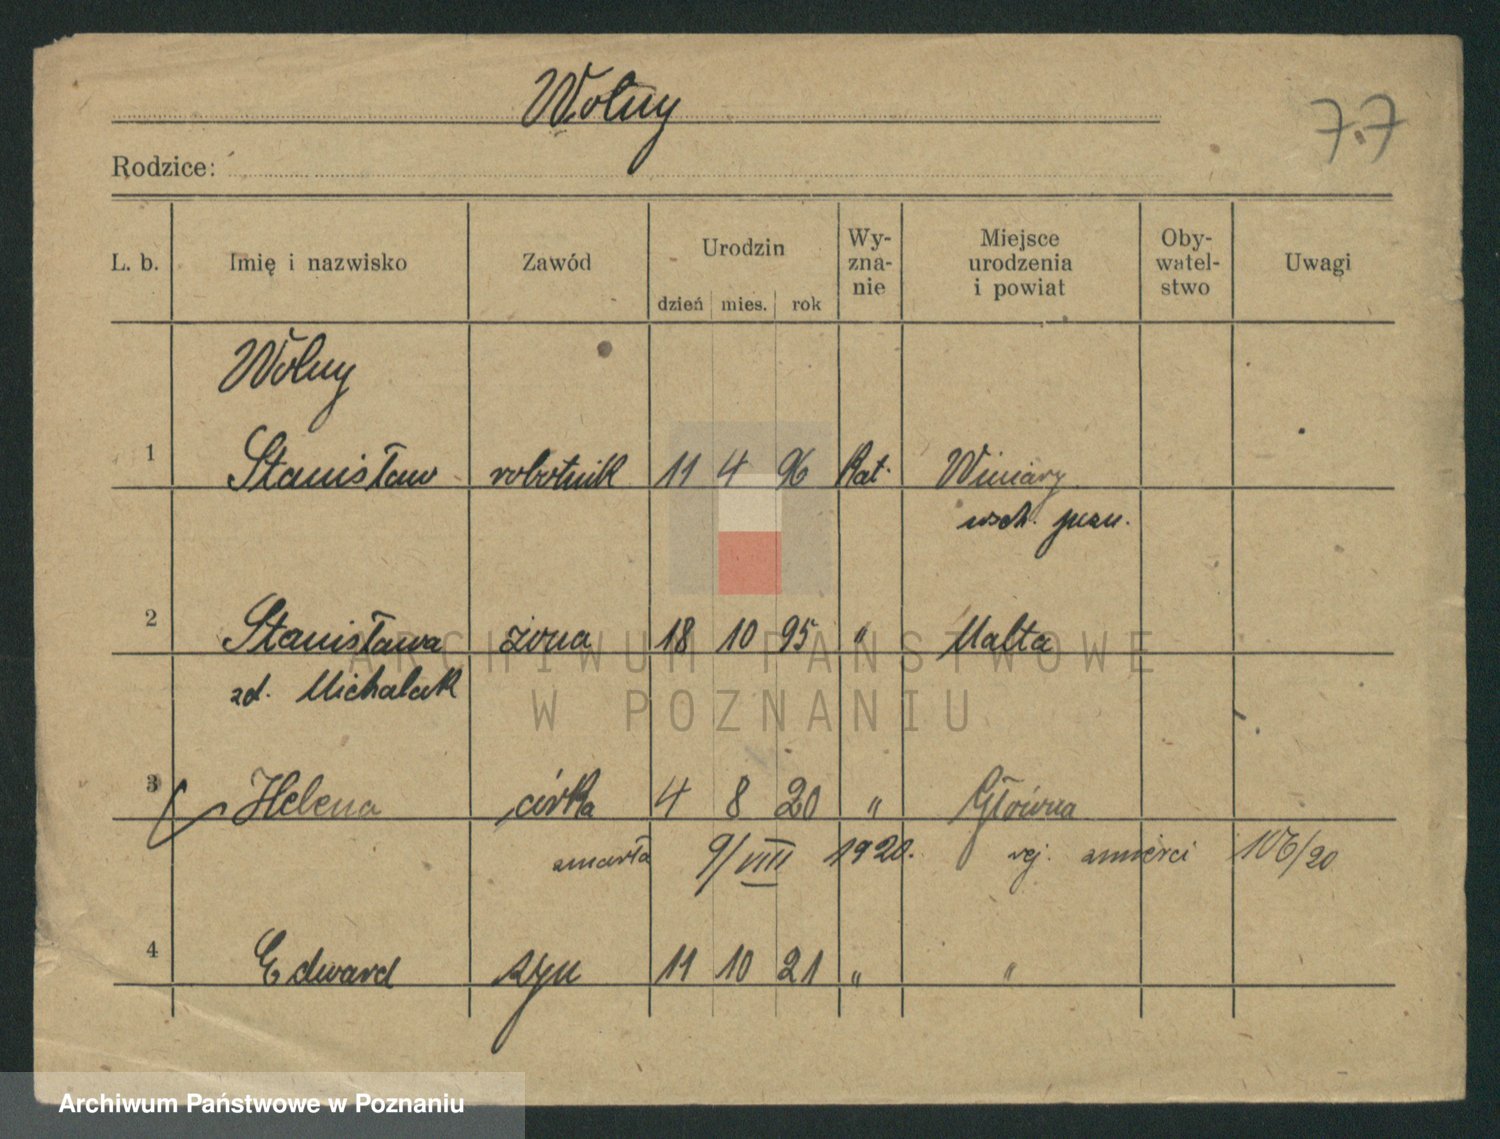 Wolny
7.7
Rodzice:
L. b. Imię i nazwisko Zawód Urodzin dzień mies. rok Wy-zna-nie Miejsce urodzenia i powiat Oby-watel-stwo Uwagi
Wolny
1 Stanisław robotnik 11 4 96 Kat. Winiary
wsch. pozn.
2 Stanisława żona 18 10 95 " Malta
zd. Michalak
ARCHIWUM PAŃSTWOWE
W POZNANIU
3 Helena córka 4 8 20 " Główna
zmarła 9/VIII 1920. rej. śmierci 106/20
4 Edward syn 11 10 21 " "
Archiwum Państwowe w Poznaniu